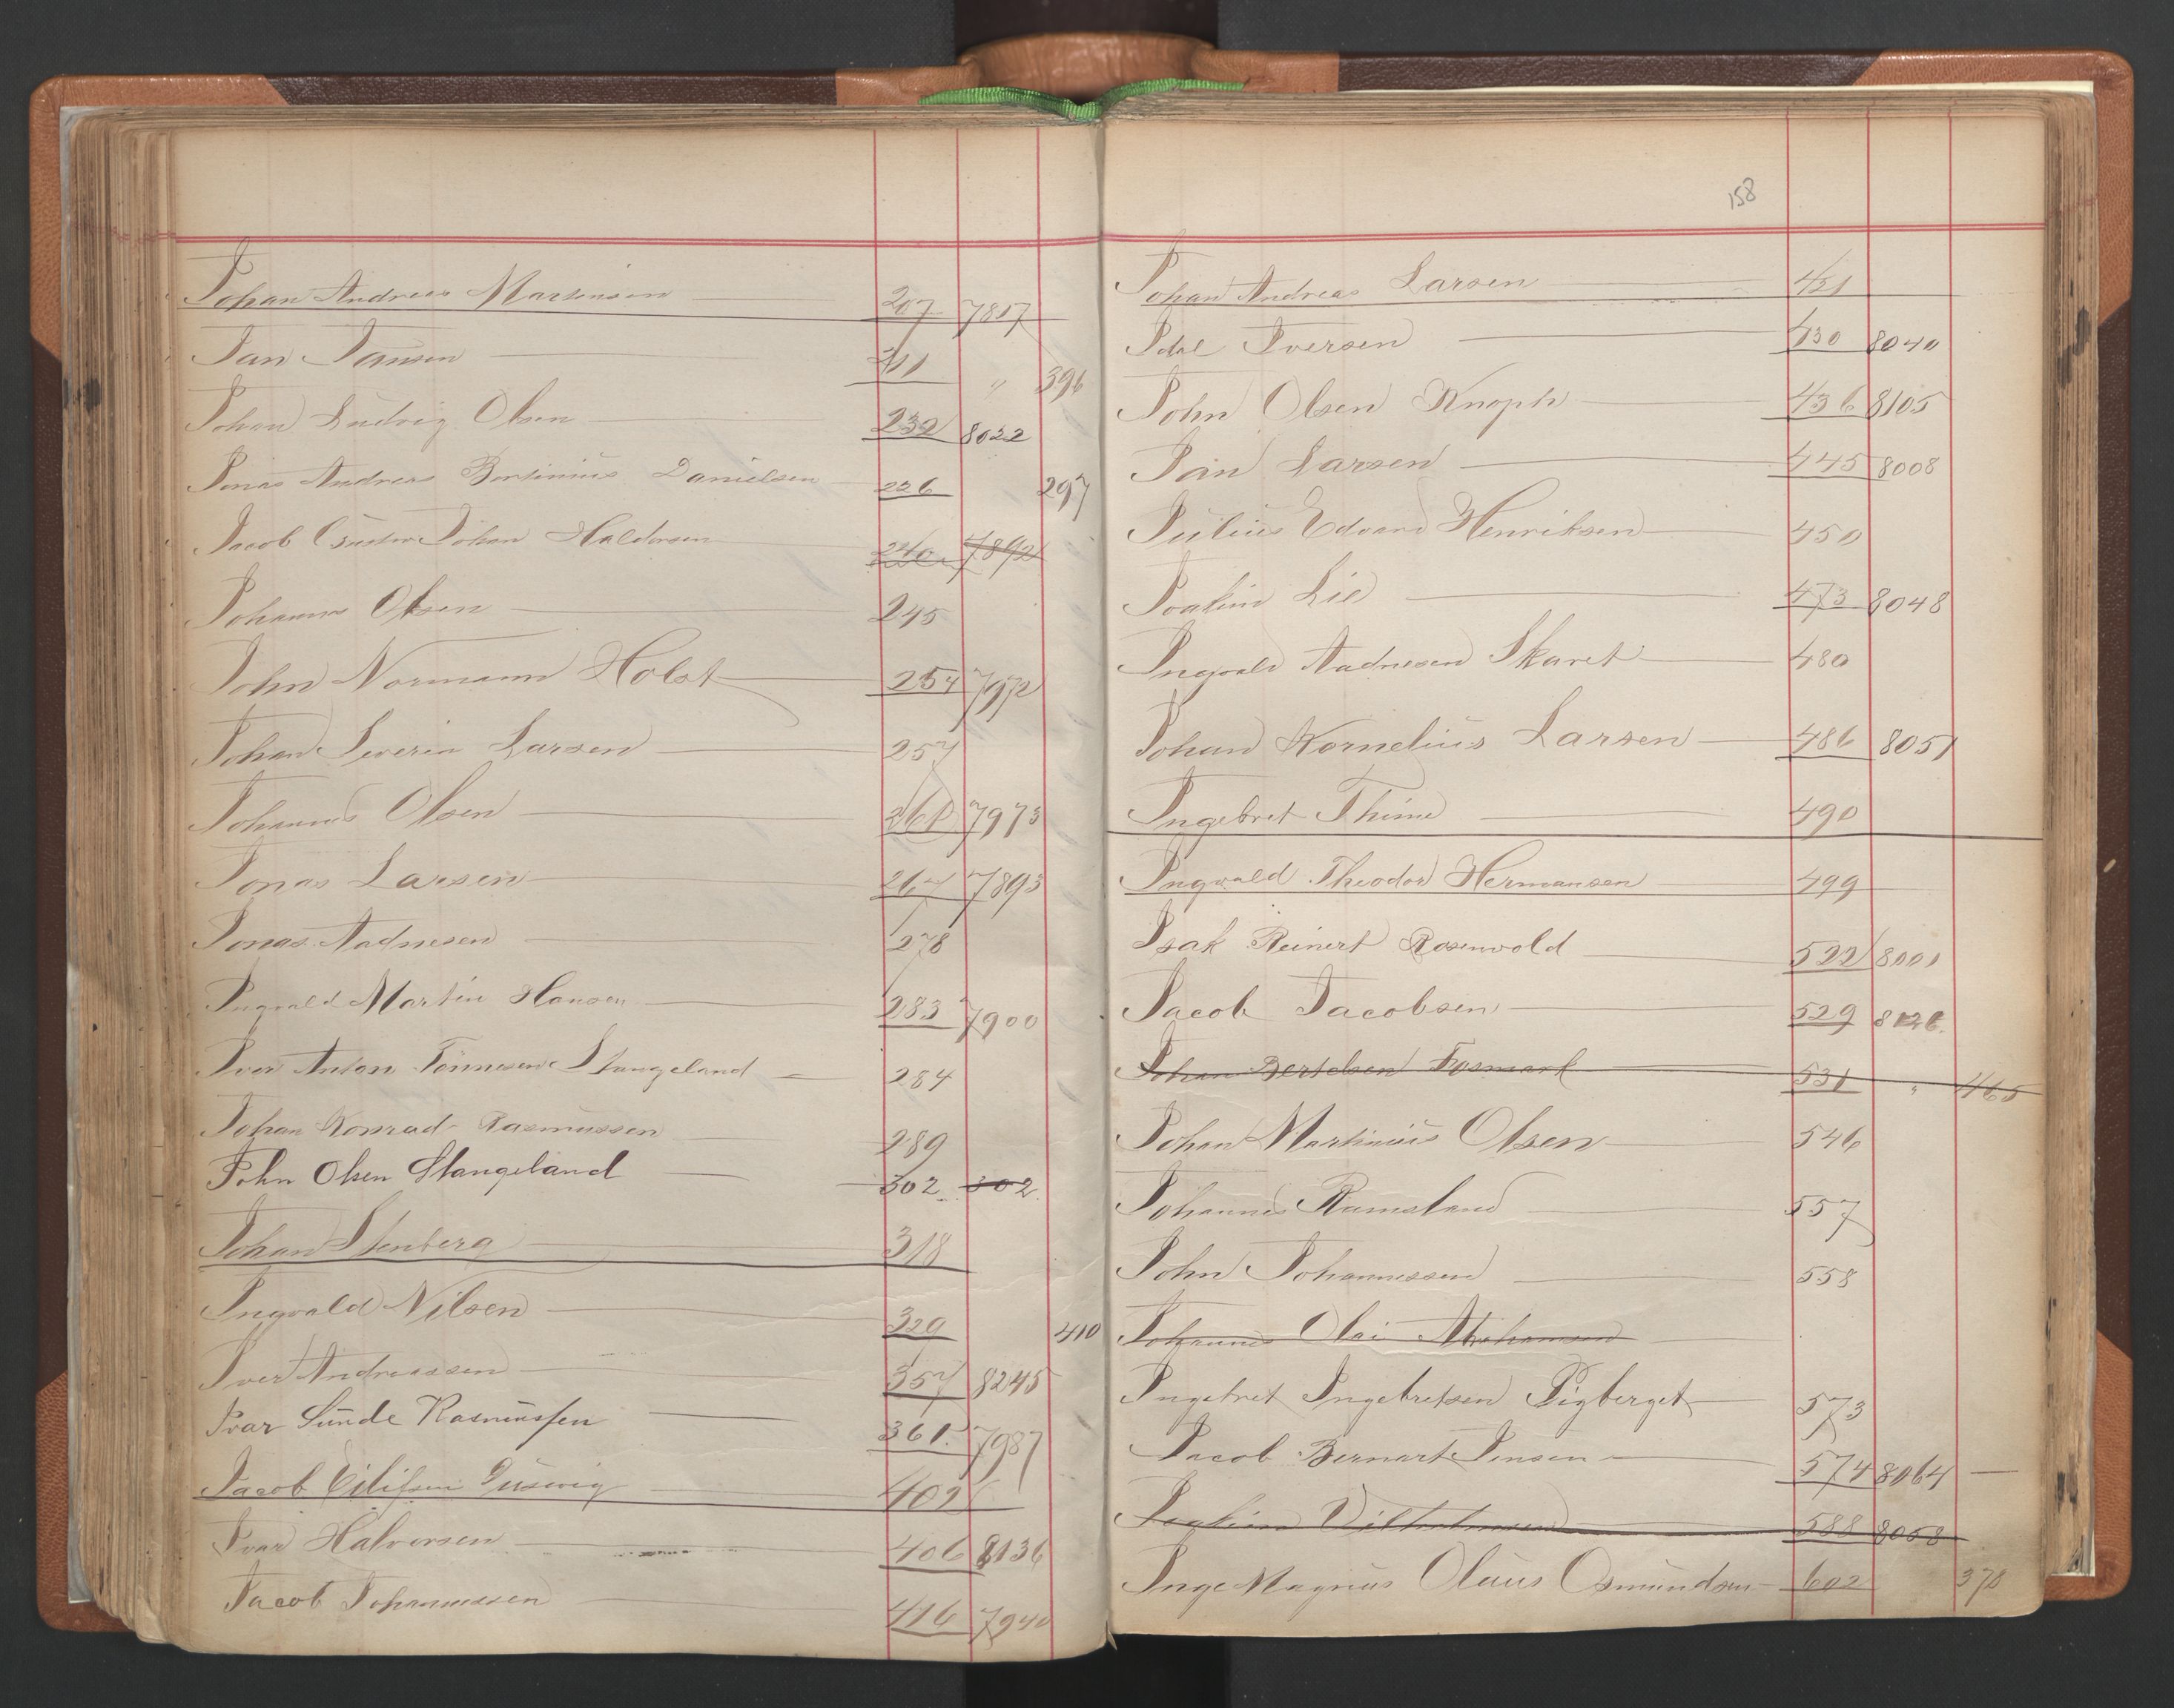 Johan Andreas Martinsen 207 7817
Jan Jansen 211 " 396
Johan Ludvig Olsen 232 8022
Jonas Andreas Bertinius Danielsen 226 297
Jacob Gustav Johan Haldorsen 240 7892
Johannes Olsen 245
John Normann Holst 254 7972
Johan Severin Larsen 257
Johannes Olsen 261 7973
Jonas Larsen 267 7893
Jonas Aadnesen 278
Ingvald Martin Hansen 283 7900
Iver Anton Tönnesen Stangeland 284
Johan Konrad Rasmussen 289
John Olsen Stangeland 302 302
Johan Stenberg 318
Ingvald Nilsen 329 410
Iver Andreassen 357 8245
Ivar Sunde Rasmussen 361 7987
Jacob Eilifsen 402
Ivar Halvorsen 406 8136
Jacob Johannessen 416 7940
158
Johan Andreas Larsen 421
Idal Iversen 430 8040
John Olsen Knoph 436 8105
Jan Larsen 445 8008
Julius Edvard Henriksen 450
Joakim Lie 473 8048
Ingvald Aadnesen Skaret 480
Johan Kornelius Larsen 486 8051
Ingebret Thime 490
Ingvald Theodor Hermansen 499
Isak Reinert Rosenvold 522 8001
Jacob Jacobsen 529 8126
Johan Bertelsen Fosmark 531 " 465
Johan Martinius Olsen 546
Johannes Ramsland 557
John Johannessen 558
Johannes Olai Abrahamsen
Ingebret Ingebretsen Digberget 573
Jacob Bernart Jensen 574 8064
Joakim Vilhelmsen 588 8058
Inge Magnus Olaus Osmundsen 602 378